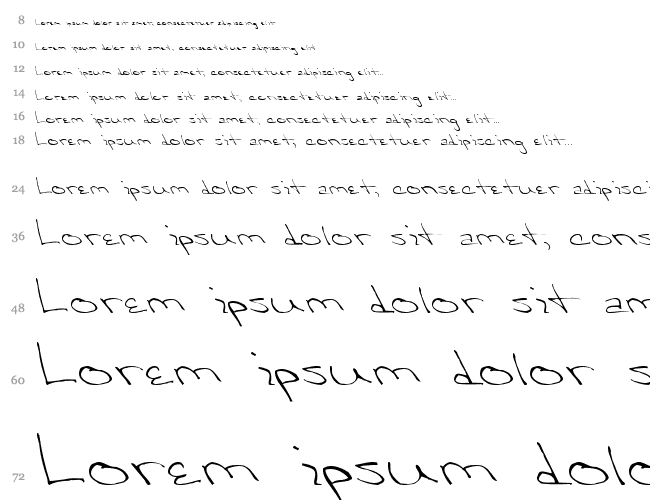 8 Lorem ipsum dolor sit amet, consectetuer adipiscing elit...
10 Lorem ipsum dolor sit amet, consectetuer adipiscing elit
12 Lorem ipsum dolor sit amet, consectetuer adipiscing elit...
14 Lorem ipsum dolor sit amet, consectetuer adipiscing elit...
16 Lorem ipsum dolor sit amet, consectetuer adipiscing elit...
18 Lorem ipsum dolor sit amet, consectetuer adipiscing elit...
24 Lorem ipsum dolor sit amet, consectetuer adipisci
36 Lorem ipsum dolor sit amet, cons
48 Lorem ipsum dolor sit am
60 Lorem ipsum dolor s
72 Lorem ipsum dolo